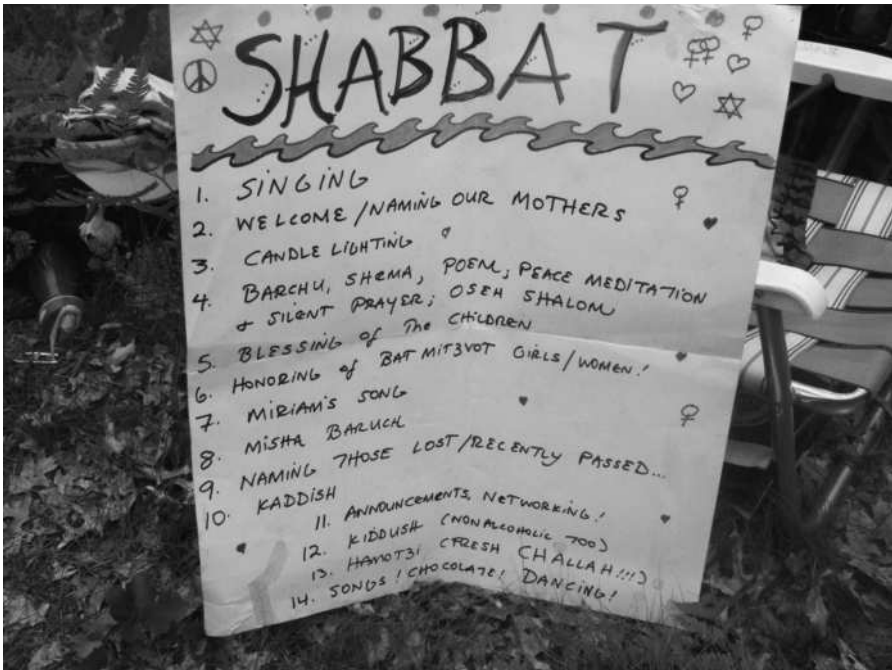 SHABBAT
1. SINGING
2. WELCOME/NAMING OUR MOTHERS
3. CANDLE LIGHTING
4. BARCHU, SHEMA, POEM, PEACE MEDITATION
+ SILENT PRAYER; OSEH SHALOM
5. BLESSING of The CHILDREN
6. HONORING of BAT MITZVOT GIRLS/WOMEN!
7. MIRIAM'S SONG
8. MISHA BARUCH
9. NAMING THOSE LOST/RECENTLY PASSED...
10. KADDISH
11. ANNOUNCEMENTS, NETWORKING!
12. KIDDUSH (NONALCOHOLIC TOO)
13. HAMOTZI (FRESH CHALLAH!!!)
14. SONGS! CHOCOLATE! DANCING!